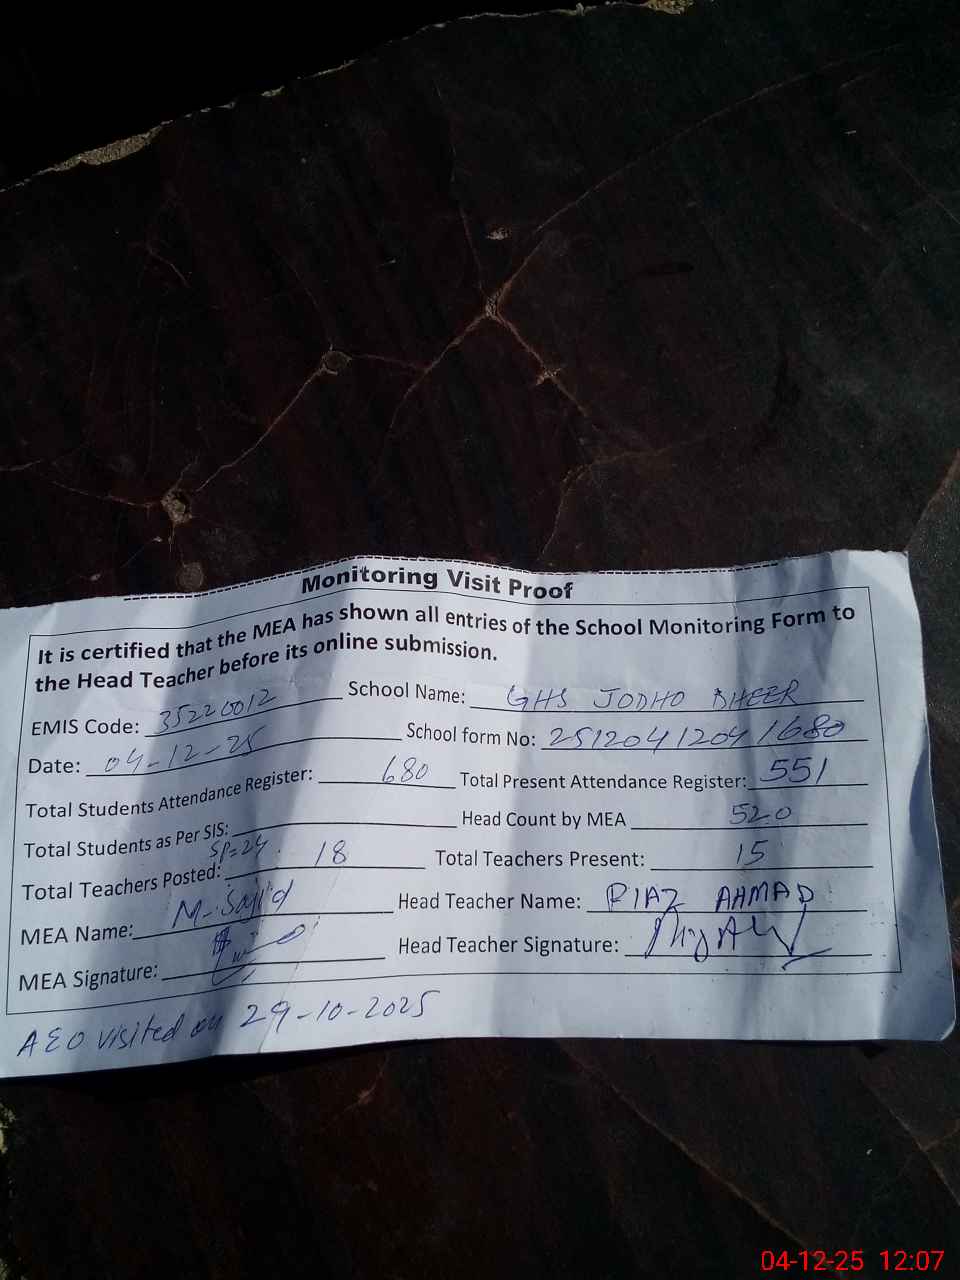 Monitoring Visit Proof
It is certified that the MEA has shown all entries of the School Monitoring Form to
the Head Teacher before its online submission.
EMIS Code: 35220012 School Name: GHS JODHO DHEER
Date: 04-12-25 School form No: 2512041204/680
Total Students Attendance Register: 680 Total Present Attendance Register: 551
Total Students as Per SIS: Head Count by MEA 520
SP=24
Total Teachers Posted: 18 Total Teachers Present: 15
MEA Name: M-Sajid Head Teacher Name: RIAZ AHMAD
MEA Signature: Head Teacher Signature:
AEO visited on 29-10-2025
04-12-25 12:07